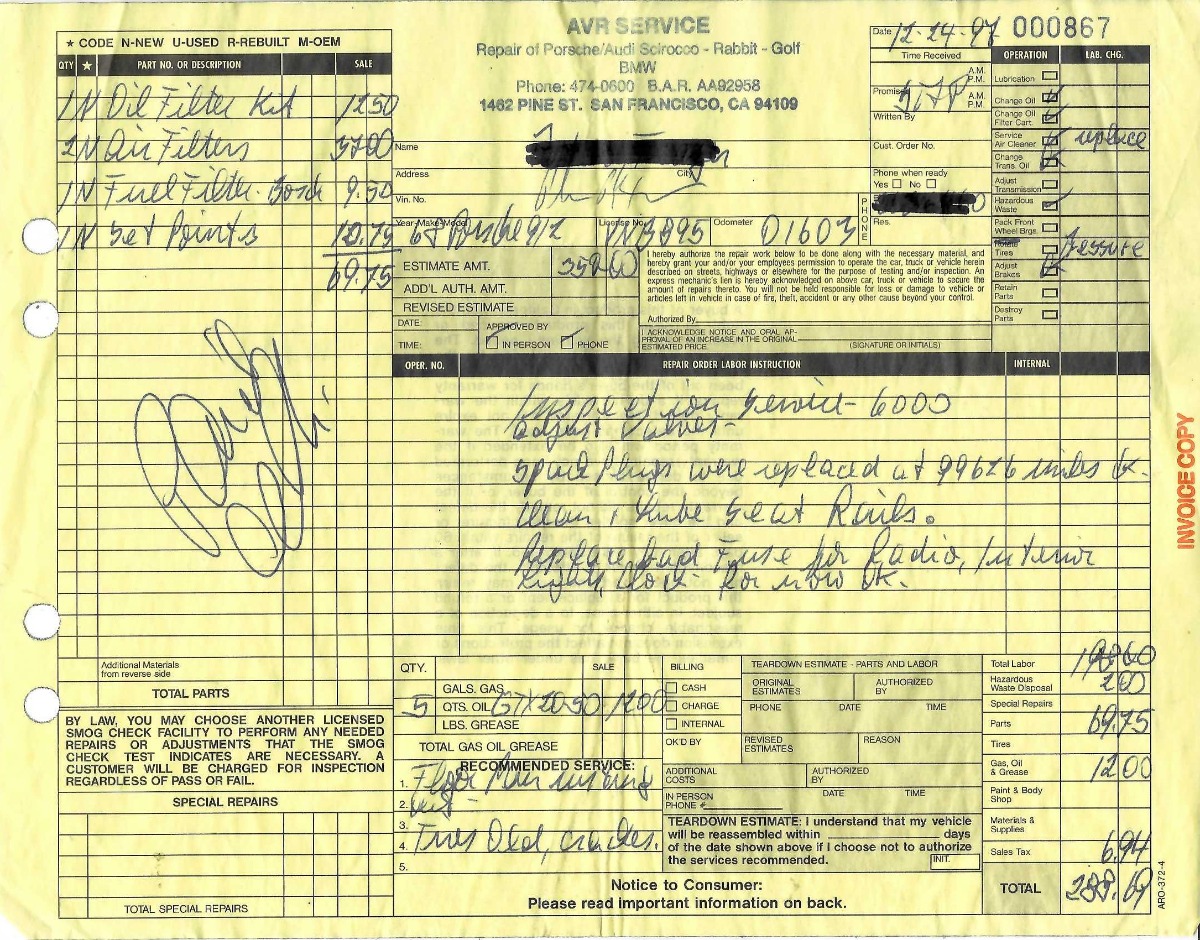 AVR SERVICE
Repair of Porsche/Audi Scirocco - Rabbit - Golf
BMW
Phone: 474-0600 B.A.R. AA92958
1462 PINE ST. SAN FRANCISCO, CA 94109
Date 12-24-97 000867
Time Received A.M. P.M.
Promised A.M. P.M.
Written By
Cust. Order No.
Phone when ready
Yes No
PHONE
Res.
★ CODE N-NEW U-USED R-REBUILT M-OEM
QTY ★ PART NO. OR DESCRIPTION SALE
1 N Oil Filter Kit 12 50
2 N Air Filters 37 00
1 N Fuel Filter-Bosch 9.50
1 N Set Points 10.75
69.75
Name
Address City
Vin. No.
Year-Make-Model Porsche 912 License No. Odometer 01603
ESTIMATE AMT.
ADD'L AUTH. AMT.
REVISED ESTIMATE
DATE: APPROVED BY
TIME: IN PERSON PHONE
I hereby authorize the repair work below to be done along with the necessary material, and
hereby grant your and/or your employees permission to operate the car, truck or vehicle herein
described on streets, highways or elsewhere for the purpose of testing and/or inspection. An
express mechanic's lien is hereby acknowledged on above car, truck or vehicle to secure the
amount of repairs thereto. You will not be held responsible for loss or damage to vehicle or
articles left in vehicle in case of fire, theft, accident or any other cause beyond your control.
Authorized By
I ACKNOWLEDGE NOTICE AND ORAL AP-
PROVAL OF AN INCREASE IN THE ORIGINAL
ESTIMATED PRICE. (SIGNATURE OR INITIALS)
OPERATION LAB. CHG.
Lubrication
Change Oil
Change Oil Filter Cart.
Service Air Cleaner replace
Change Trans. Oil
Adjust Transmission
Hazardous Waste
Pack Front Wheel Brgs.
Tires Pressure
Adjust Brakes
Retain Parts
Destroy Parts
OPER. NO. REPAIR ORDER LABOR INSTRUCTION INTERNAL
Inspection Service - 6000
adjust Valves-
Spark Plugs were replaced at 99626 miles ok.
Clean + Lube Seat Rails.
Replace bad Fuse for Radio, Interior
Light, Clock- for now ok.
INVOICE COPY
Additional Materials
from reverse side
TOTAL PARTS
BY LAW, YOU MAY CHOOSE ANOTHER LICENSED
SMOG CHECK FACILITY TO PERFORM ANY NEEDED
REPAIRS OR ADJUSTMENTS THAT THE SMOG
CHECK TEST INDICATES ARE NECESSARY. A
CUSTOMER WILL BE CHARGED FOR INSPECTION
REGARDLESS OF PASS OR FAIL.
SPECIAL REPAIRS
TOTAL SPECIAL REPAIRS
QTY. SALE
GALS. GAS
5 QTS. OIL GTX 20-50 12 00
LBS. GREASE
TOTAL GAS OIL GREASE
RECOMMENDED SERVICE:
1. Floor
2.
3.
4. Tires Old, cracks.
5.
BILLING
CASH
CHARGE
INTERNAL
OK'D BY
TEARDOWN ESTIMATE - PARTS AND LABOR
ORIGINAL ESTIMATES AUTHORIZED BY
PHONE DATE TIME
REVISED ESTIMATES REASON
ADDITIONAL COSTS AUTHORIZED BY
IN PERSON DATE TIME
PHONE #
TEARDOWN ESTIMATE: I understand that my vehicle
will be reassembled within days
of the date shown above if I choose not to authorize
the services recommended. INIT.
Total Labor 198.00
Hazardous Waste Disposal 2 00
Special Repairs
Parts 69.75
Tires
Gas, Oil & Grease 12 00
Paint & Body Shop
Materials & Supplies
Sales Tax 6.94
TOTAL 288.69
Notice to Consumer:
Please read important information on back.
ARO-372-4